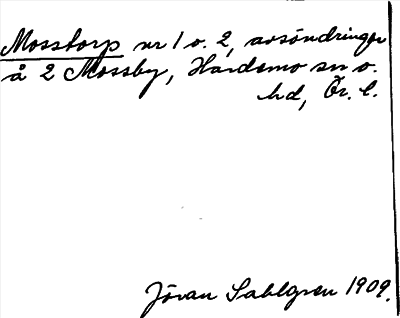 Mosstorp nr 1 o. 2, avsöndringar
å 2 Mossby, Hardemo sn o.
hd, Ör. l.
Jöran Sahlgren 1909.